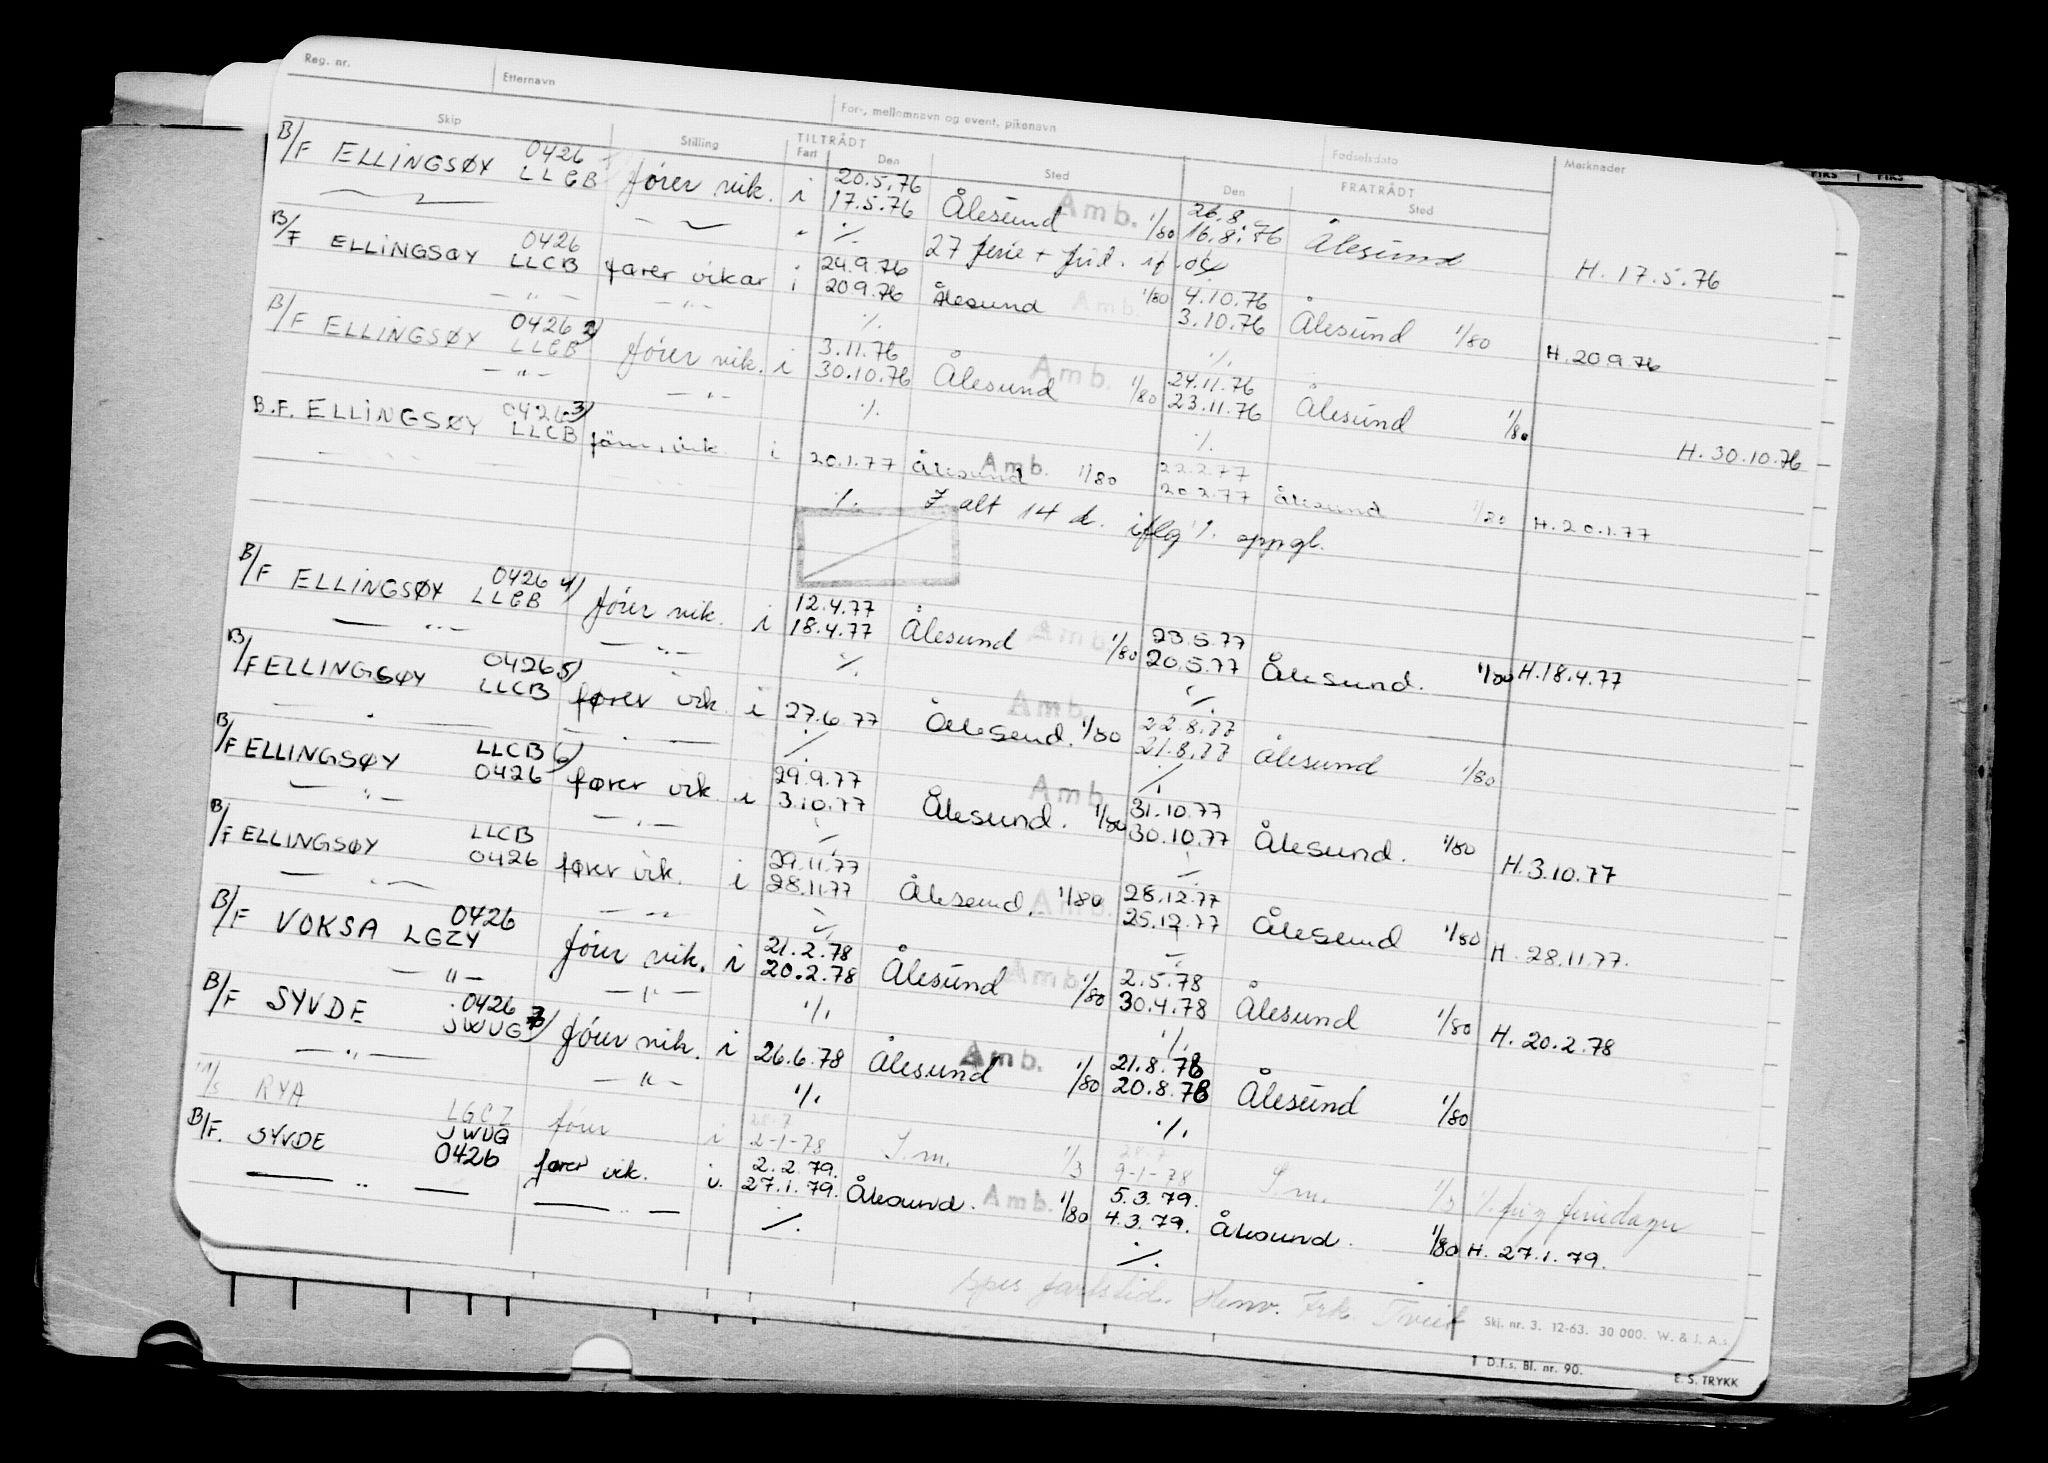 Reg. nr. Etternavn For-, mellomnavn og event. pikenavn Fødselsdato Merknader
Skip Stilling TILTRÅDT Fart Den Sted Den FRATRÅDT Sted
B/F ELLINGSØY 0426 LLCB fører vik. i 20.5.76 17.5.76 Ålesund Amb. 1/80 26.8. 16.8.76 Ålesund H. 17.5.76
— " — " ./. 27 ferie + frid.
B/F ELLINGSØY 0426 LLCB fører vikar i 24.9.76 20.9.76 Ålesund Amb. 1/80 4.10.76 3.10.76 Ålesund 1/80 H. 20.9.76
— " — — " — ./. ./.
B/F ELLINGSØY 0426 2) LLCB fører vik. i 3.11.76 30.10.76 Ålesund Amb. 1/80 24.11.76 23.11.76 Ålesund 1/80 H. 30.10.76
— " — — " — ./. ./.
B.F. ELLINGSØY 0426 3) LLCB i 20.1.77 Ålesund Amb. 1/80 22.2.77 20.2.77 Ålesund 1/80 H. 20.1.77
./. I alt 14 d. iflg ./. oppg.
B/F ELLINGSØY 0426 4) LLCB fører vik. i 12.4.77 18.4.77 Ålesund Amb. 1/80 23.5.77 20.5.77 Ålesund. 1/80 H. 18.4.77
— " — — " — ./. ./.
B/F ELLINGSØY 0426 5) LLCB fører vik. i 27.6.77 Ålesund. Amb. 1/80 22.8.77 21.8.77 Ålesund 1/80
— " — — " — ./. ./.
B/F ELLINGSØY LLCB 6) 0426 fører vik. i 29.9.77 3.10.77 Ålesund. Amb. 1/80 31.10.77 30.10.77 Ålesund. 1/80 H. 3.10.77
— " — — " — ./. ./.
B/F ELLINGSØY LLCB 0426 fører vik. i 29.11.77 28.11.77 Ålesund. Amb. 1/80 28.12.77 25.12.77 Ålesund 1/80 H. 28.11.77.
— " — — " — ./. ./.
B/F VOKSA 0426 LGZY fører vik. i 21.2.78 20.2.78 Ålesund Amb. 1/80 2.5.78 30.4.78 Ålesund 1/80 H. 20.2.78
— " — — " — ./. ./.
B/F SYVDE 0426 JWUG 7) fører vik. i 26.6.78 Ålesund Amb. 1/80 21.8.78 20.8.78 Ålesund 1/80
— " — — " — ./. ./.
M/S RYA LGCZ fører i 28.7 2-1-78 S.m. 1/3 28.7 9-1-78 S.m. 1/3 ./. feriedager
B/F. SYVDE JWUG 0426 fører vik. i. 2.2.79. 27.1.79. Ålesund. Amb. 1/80 5.3.79. 4.3.79. Ålesund. 1/80 H. 27.1.79.
— " — — " — ./. ./.
spes fartstid. Henv. Frk. Tveit
Skj. nr. 3. 12-63. 30 000. W. & J. A.s
D.f.s. Bl. nr. 90.
E. S. TRYKK